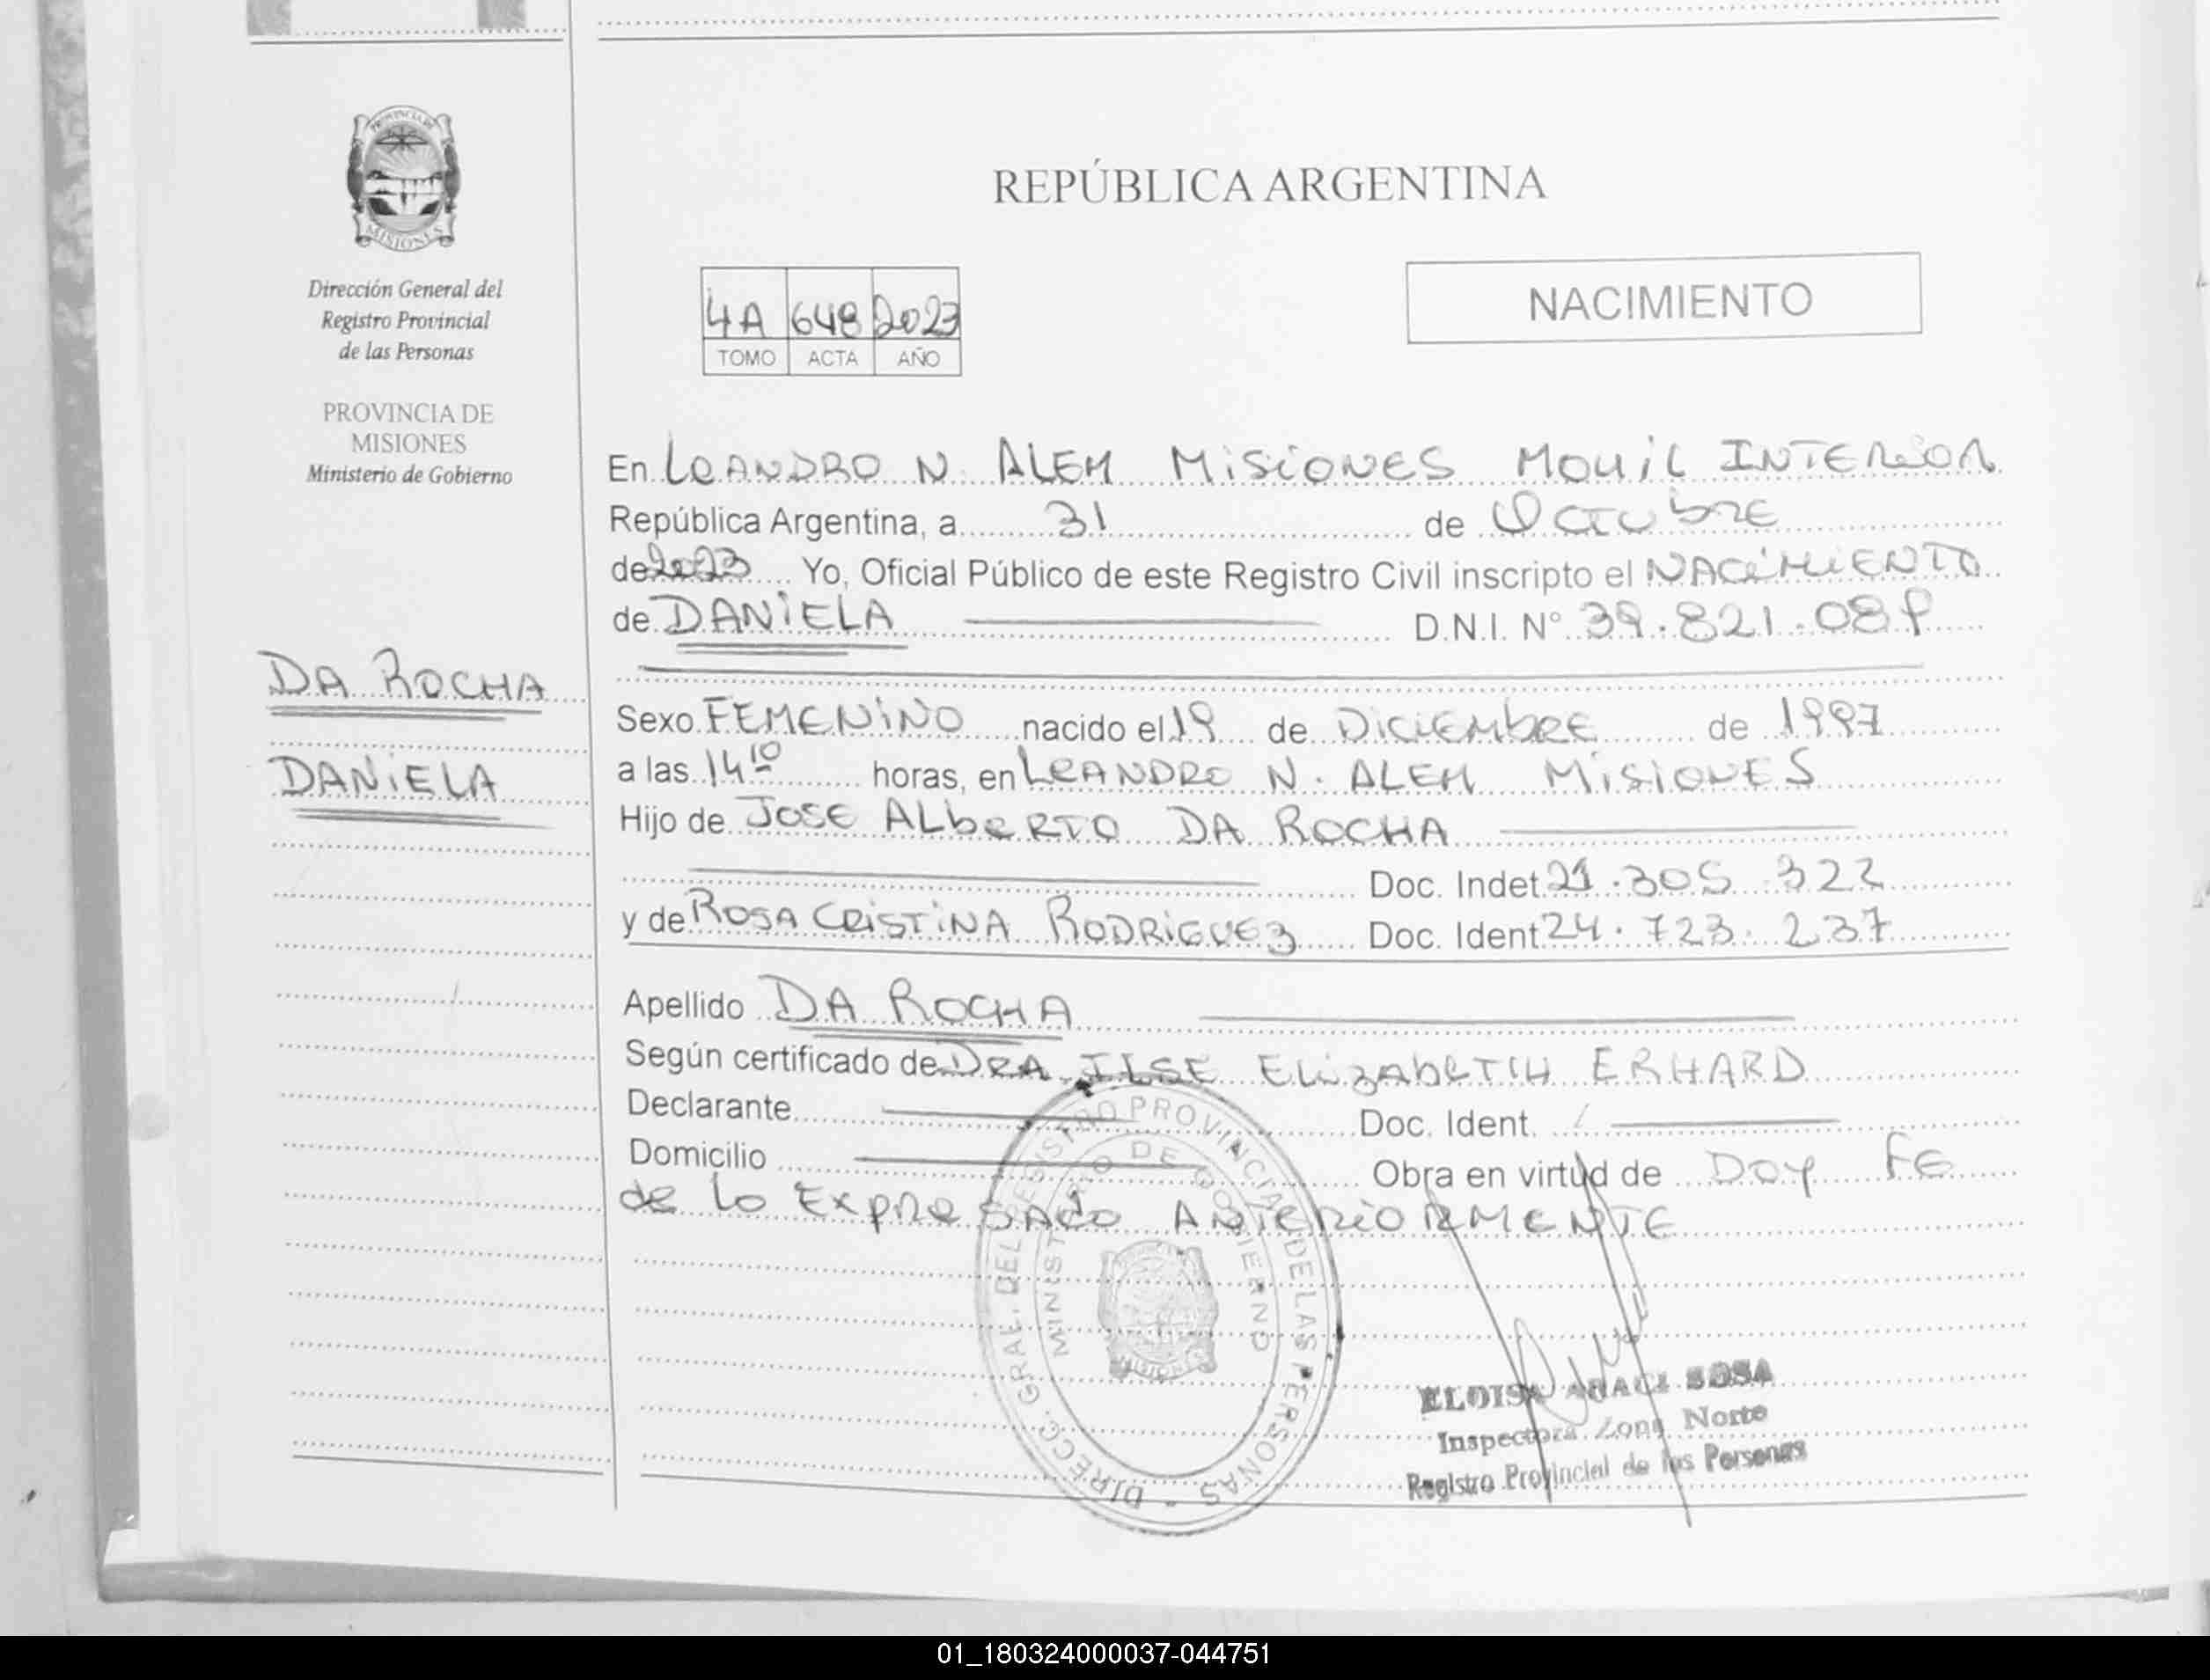 PROVINCIA DE
MISIONES
Dirección General del
Registro Provincial
de las Personas
PROVINCIA DE
MISIONES
Ministerio de Gobierno
DA ROCHA
DANIELA
REPÚBLICA ARGENTINA
NACIMIENTO
4A 648 2023
TOMO ACTA AÑO
En LeANDRO N. ALEM MISIONES MOUIL INTERIOR
República Argentina, a 31 de OCTUbRE
de 2023 Yo, Oficial Público de este Registro Civil inscripto el NACIMIENTO
de DANIELA D.N.I. N° 39.821.089
Sexo FEMENINO nacido el 19 de DICIEMbRE de 1997
a las 14 10 horas, en LeANDRO N. ALEM MISIONES
Hijo de JOSE ALbeRTO DA ROCHA
Doc. Indet. 21.305.322
y de ROSA CRISTINA RODRIGUEZ Doc. Ident. 24.723.237
Apellido DA ROCHA
Según certificado de DRA ILSE ELIZAbETH ERHARD
Declarante Doc. Ident.
Domicilio Obra en virtud de Doy FE
de lo EXPReSADO ANTERIORMENTE
DIRECC. GRAL. DEL REGISTRO PROVINCIAL DE LAS PERSONAS -
MINISTERIO DE GOBIERNO
MISIONES
ELOISA ARACI SOSA
Inspectora Zona Norte
Registro Provincial de las Personas
01_180324000037-044751